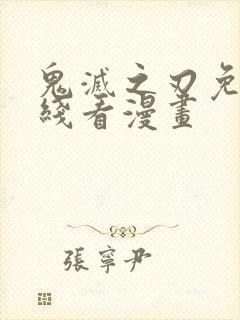 鬼滅之刃免
綫看漫畫
張寧尹